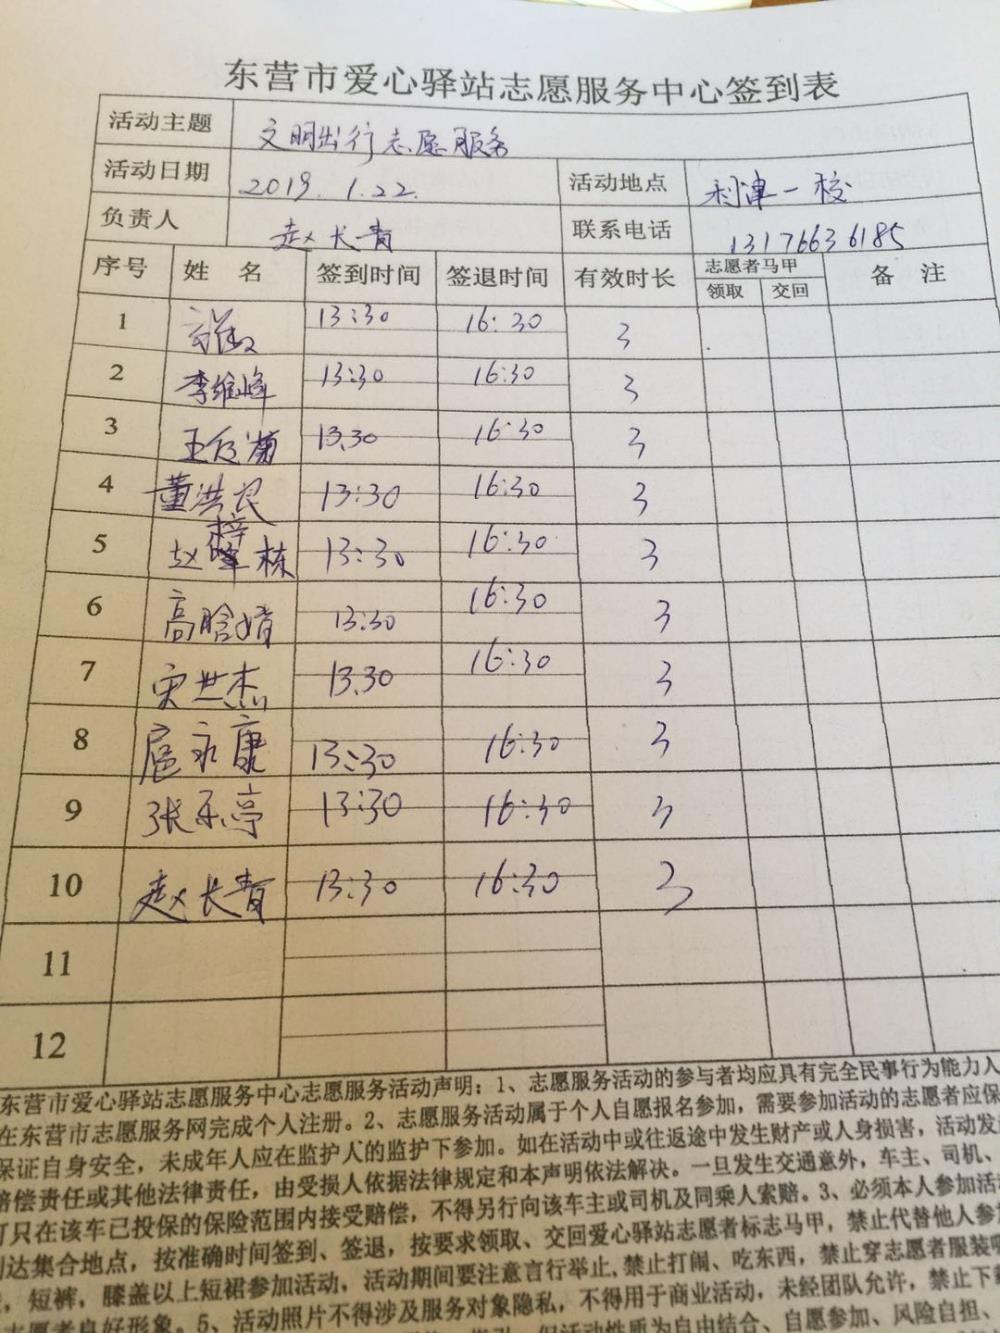 东营市爱心驿站志愿服务中心签到表
活动主题 文明出行志愿服务
活动日期 2019.1.22. 活动地点 利津一校
负责人 赵长青 联系电话 13176636185
序号 姓 名 签到时间 签退时间 有效时长 志愿者马甲 备 注
领取 交回
1 13:30 16:30 3
2 李维峰 13:30 16:30 3
3 13.30 16:30 3
4 董洪良 13:30 16:30 3
5 赵梓栋 13:30 16:30 3
6 高晗婧 13:30 16:30 3
7 宋世杰 13.30 16:30 3
8 扈永康 13:30 16:30 3
9 张乐亭 13:30 16:30 3
10 赵长青 13:30 16:30 3
11
12
东营市爱心驿站志愿服务中心志愿服务活动声明：1、志愿服务活动的参与者均应具有完全民事行为能力人
在东营市志愿服务网完成个人注册。2、志愿服务活动属于个人自愿报名参加，需要参加活动的志愿者应保
保证自身安全，未成年人应在监护人的监护下参加。如在活动中或往返途中发生财产或人身损害，活动发
赔偿责任或其他法律责任，由受损人依据法律规定和本声明依法解决。一旦发生交通意外，车主、司机、
可只在该车已投保的保险范围内接受赔偿，不得另行向该车主或司机及同乘人索赔。3、必须本人参加活
到达集合地点，按准确时间签到、签退，按要求领取、交回爱心驿站志愿者标志马甲，禁止代替他人参
，短裤，膝盖以上短裙参加活动，活动期间要注意言行举止，禁止打闹、吃东西，禁止穿志愿者服装
志愿者良好形象。5、活动照片不得涉及服务对象隐私，不得用于商业活动，未经团队允许，禁止下
但活动性质为自由结合、自愿参加、风险自担、